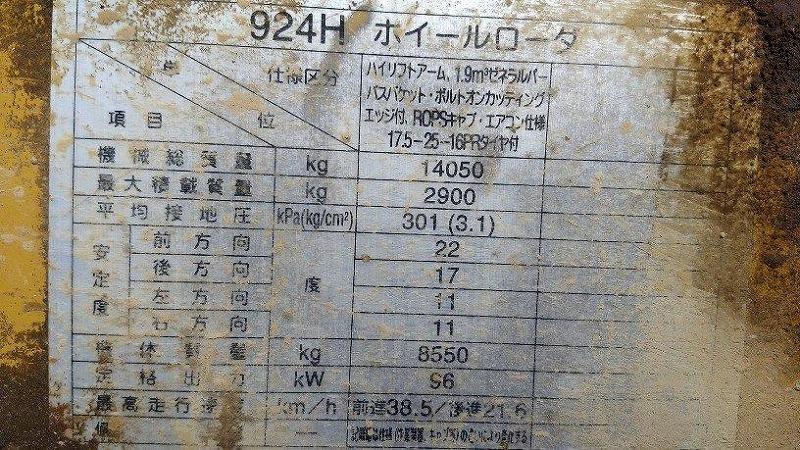 924H ホイールローダ
仕様区分
項目
単位
ハイリフトアーム、1.9m³ゼネラルパー
パスバケット・ボルトオンカッティング
エッジ付、ROPSキャブ・エアコン仕様
17.5-25-16PRタイヤ付
機械総質量 kg 14050
最大積載質量 kg 2900
平均接地圧 kPa(kg/cm²) 301 (3.1)
安定度 前方向 度 22
後方向 17
左方向 11
右方向 11
機体質量 kg 8550
定格出力 kW 96
最高走行速 km/h 前進38.5/後進21.6